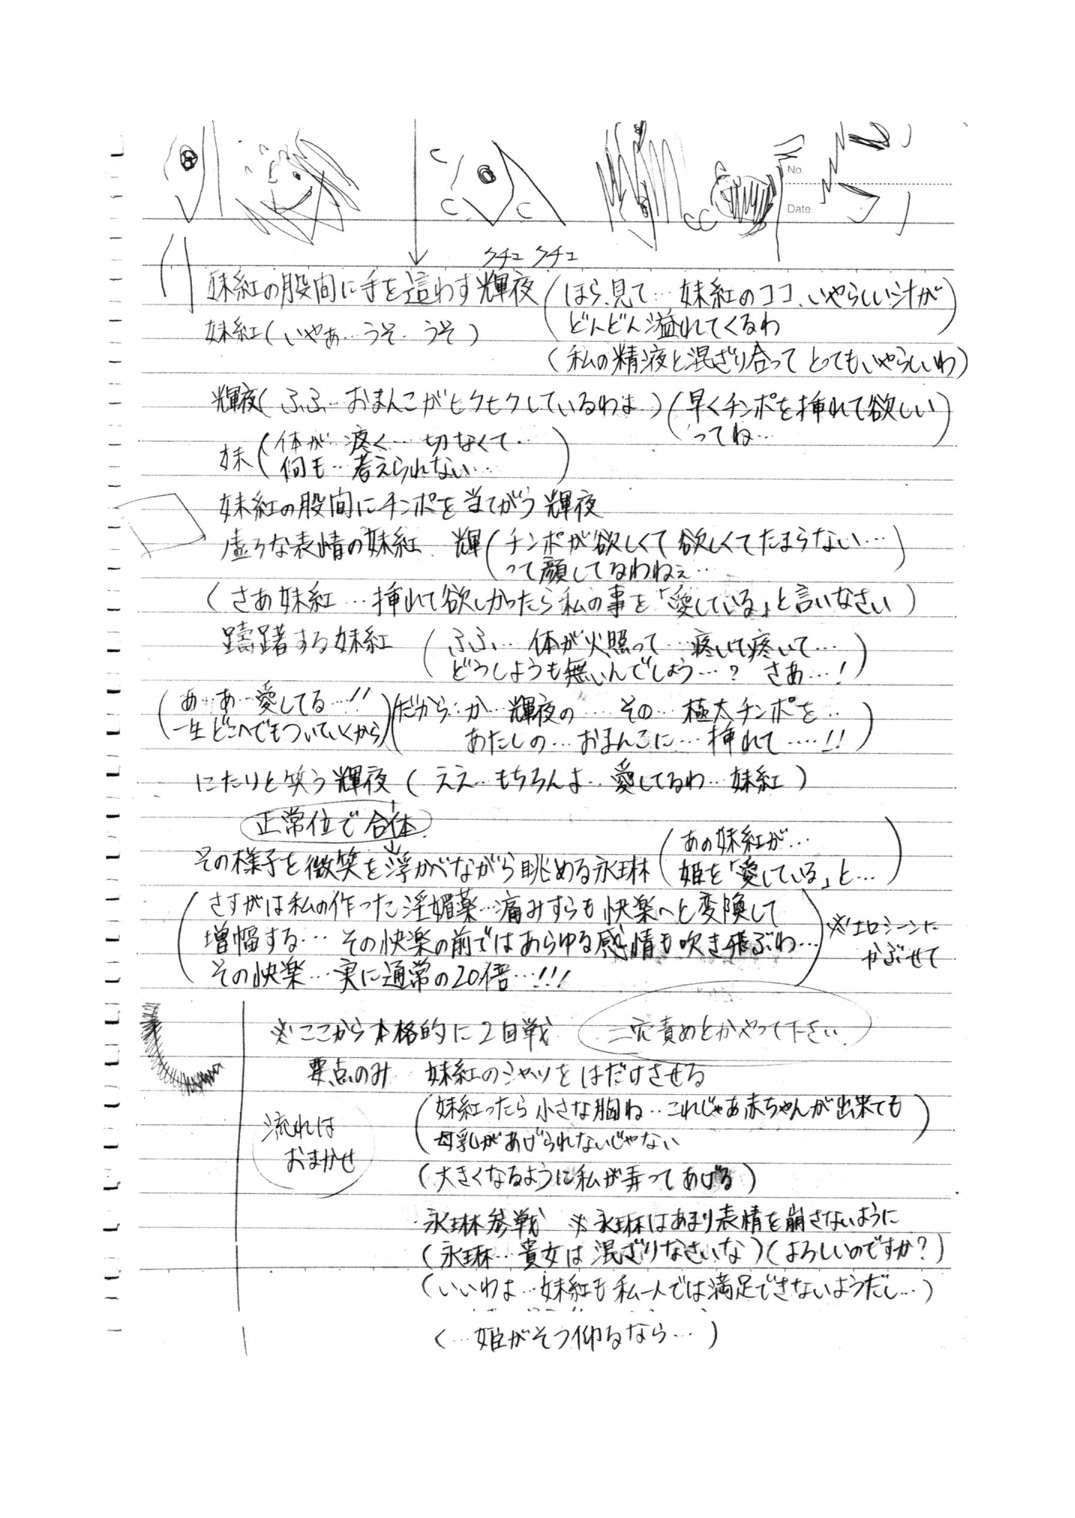 No.
Date
クチュ クチュ
妹紅の股間に手を這わす輝夜(ほら、見て…妹紅のココ、いやらしい汁が
どんどん溢れてくるわ)
妹紅(いやぁ…うそ…うそ)
(私の精液と混ざり合ってとってもいやらしいわ)
輝夜(ふふ…おまんこがヒクヒクしているわよ)(早くチンポを挿れて欲しい
ってね…)
妹(体が…疼く…切なくて…
何も…考えられない…)
妹紅の股間にチンポを当てがう輝夜
虚ろな表情の妹紅 輝(チンポが欲しくて欲しくてたまらない…
って顔してるわねぇ…)
(さあ妹紅…挿れて欲しかったら私の事を「愛している」と言いなさい)
躊躇する妹紅(ふふ…体が火照って…疼いて疼いて…
どうしようも無いんでしょう…? さあ…!)
(あ…あ…愛してる…!!
一生どこへでもついていくから)(だから…か…輝夜の…その…極太チンポを…
あたしの…おまんこに…挿れて……!!)
にたりと笑う輝夜(ええ…もちろんよ…愛してるわ…妹紅)
正常位で合体
その様子を微笑を浮かべながら眺める永琳(あの妹紅が…
姫を「愛している」と…)
(さすがは私の作った淫媚薬…痛みすらも快楽へと変換して
増幅する…その快楽の前ではあらゆる感情も吹き飛ぶわ…
その快楽…実に通常の20倍…!!!)
※エロシーンに
かぶせて
※ここから本格的に2回戦 三穴責めとかやって下さい
要点のみ 妹紅のシャツをはだけさせる
流れは
おまかせ
(妹紅ったら小さな胸ね…これじゃあ赤ちゃんが出来ても
母乳があげられないじゃない)
(大きくなるように私が弄ってあげる)
永琳参戦 ※永琳はあまり表情を崩さないように
(永琳…貴女は混ざりなさいな)(よろしいのですか?)
(いいわよ…妹紅も私一人では満足できないようだし…)
(…姫がそう仰るなら…)